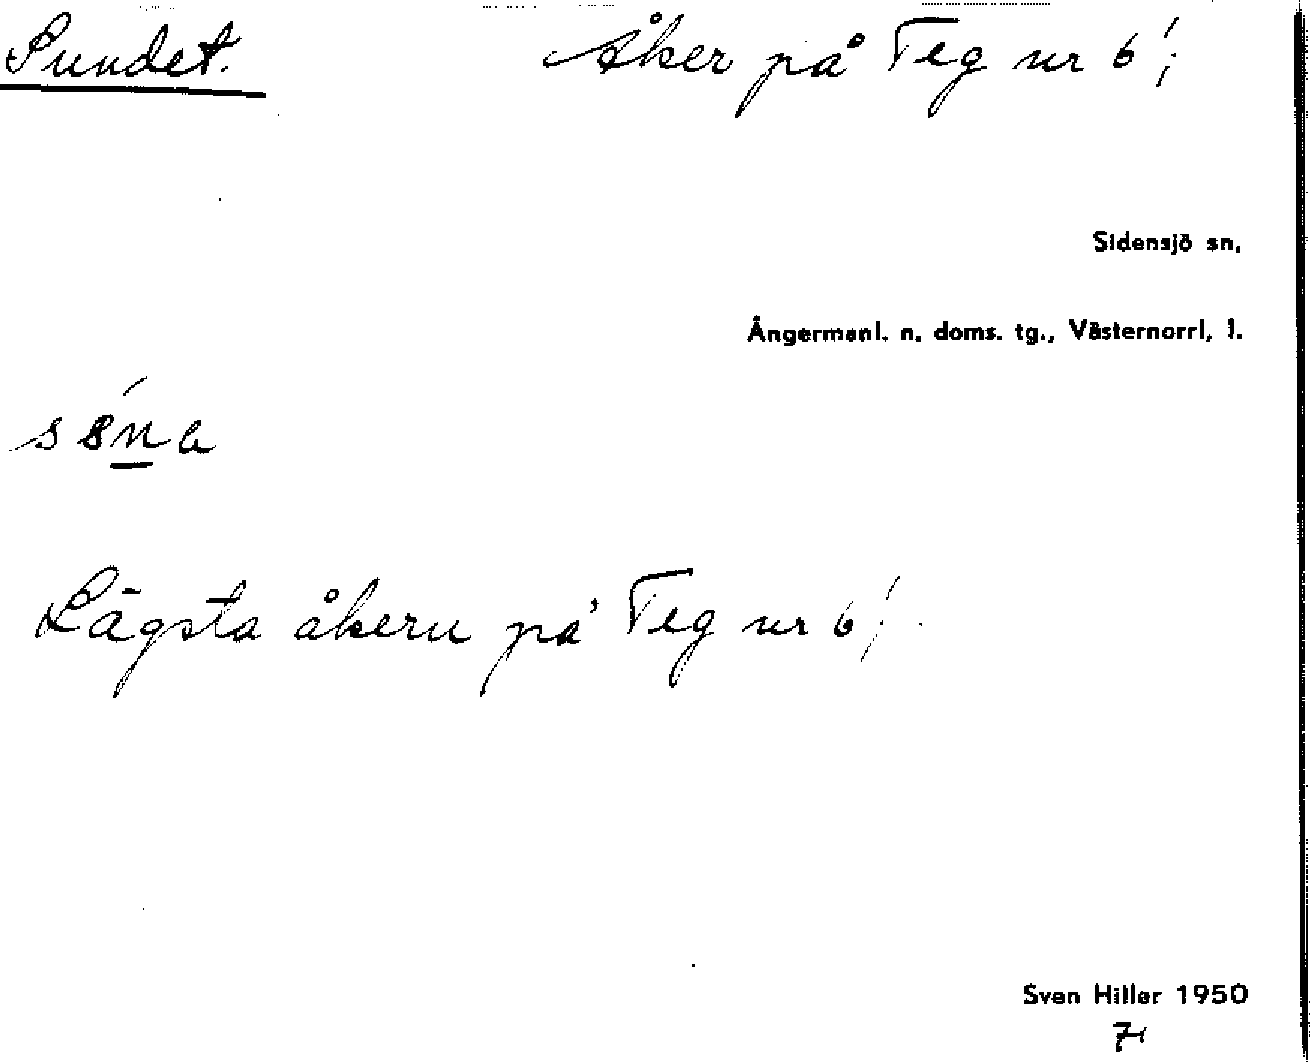 Sundet. Åker på Teg nr 6¹;
Sidensjö sn.
Ångermanl. n. doms. tg., Västernorrl. l.
Lägsta åkern på Teg nr 6¹
Sven Hiller 1950